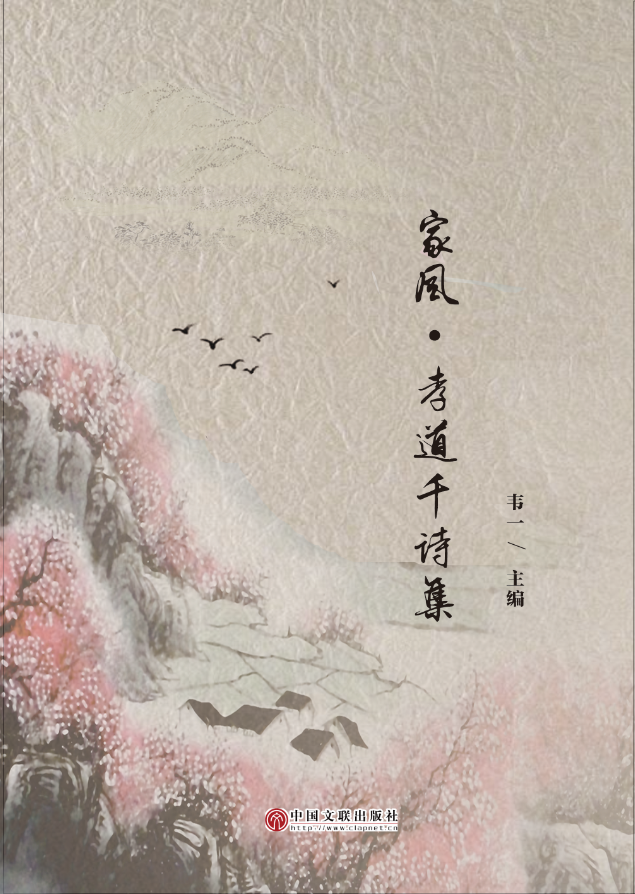 家风·孝道千诗集
韦一/主编
中国文联出版社
http://www.clapnet.cn